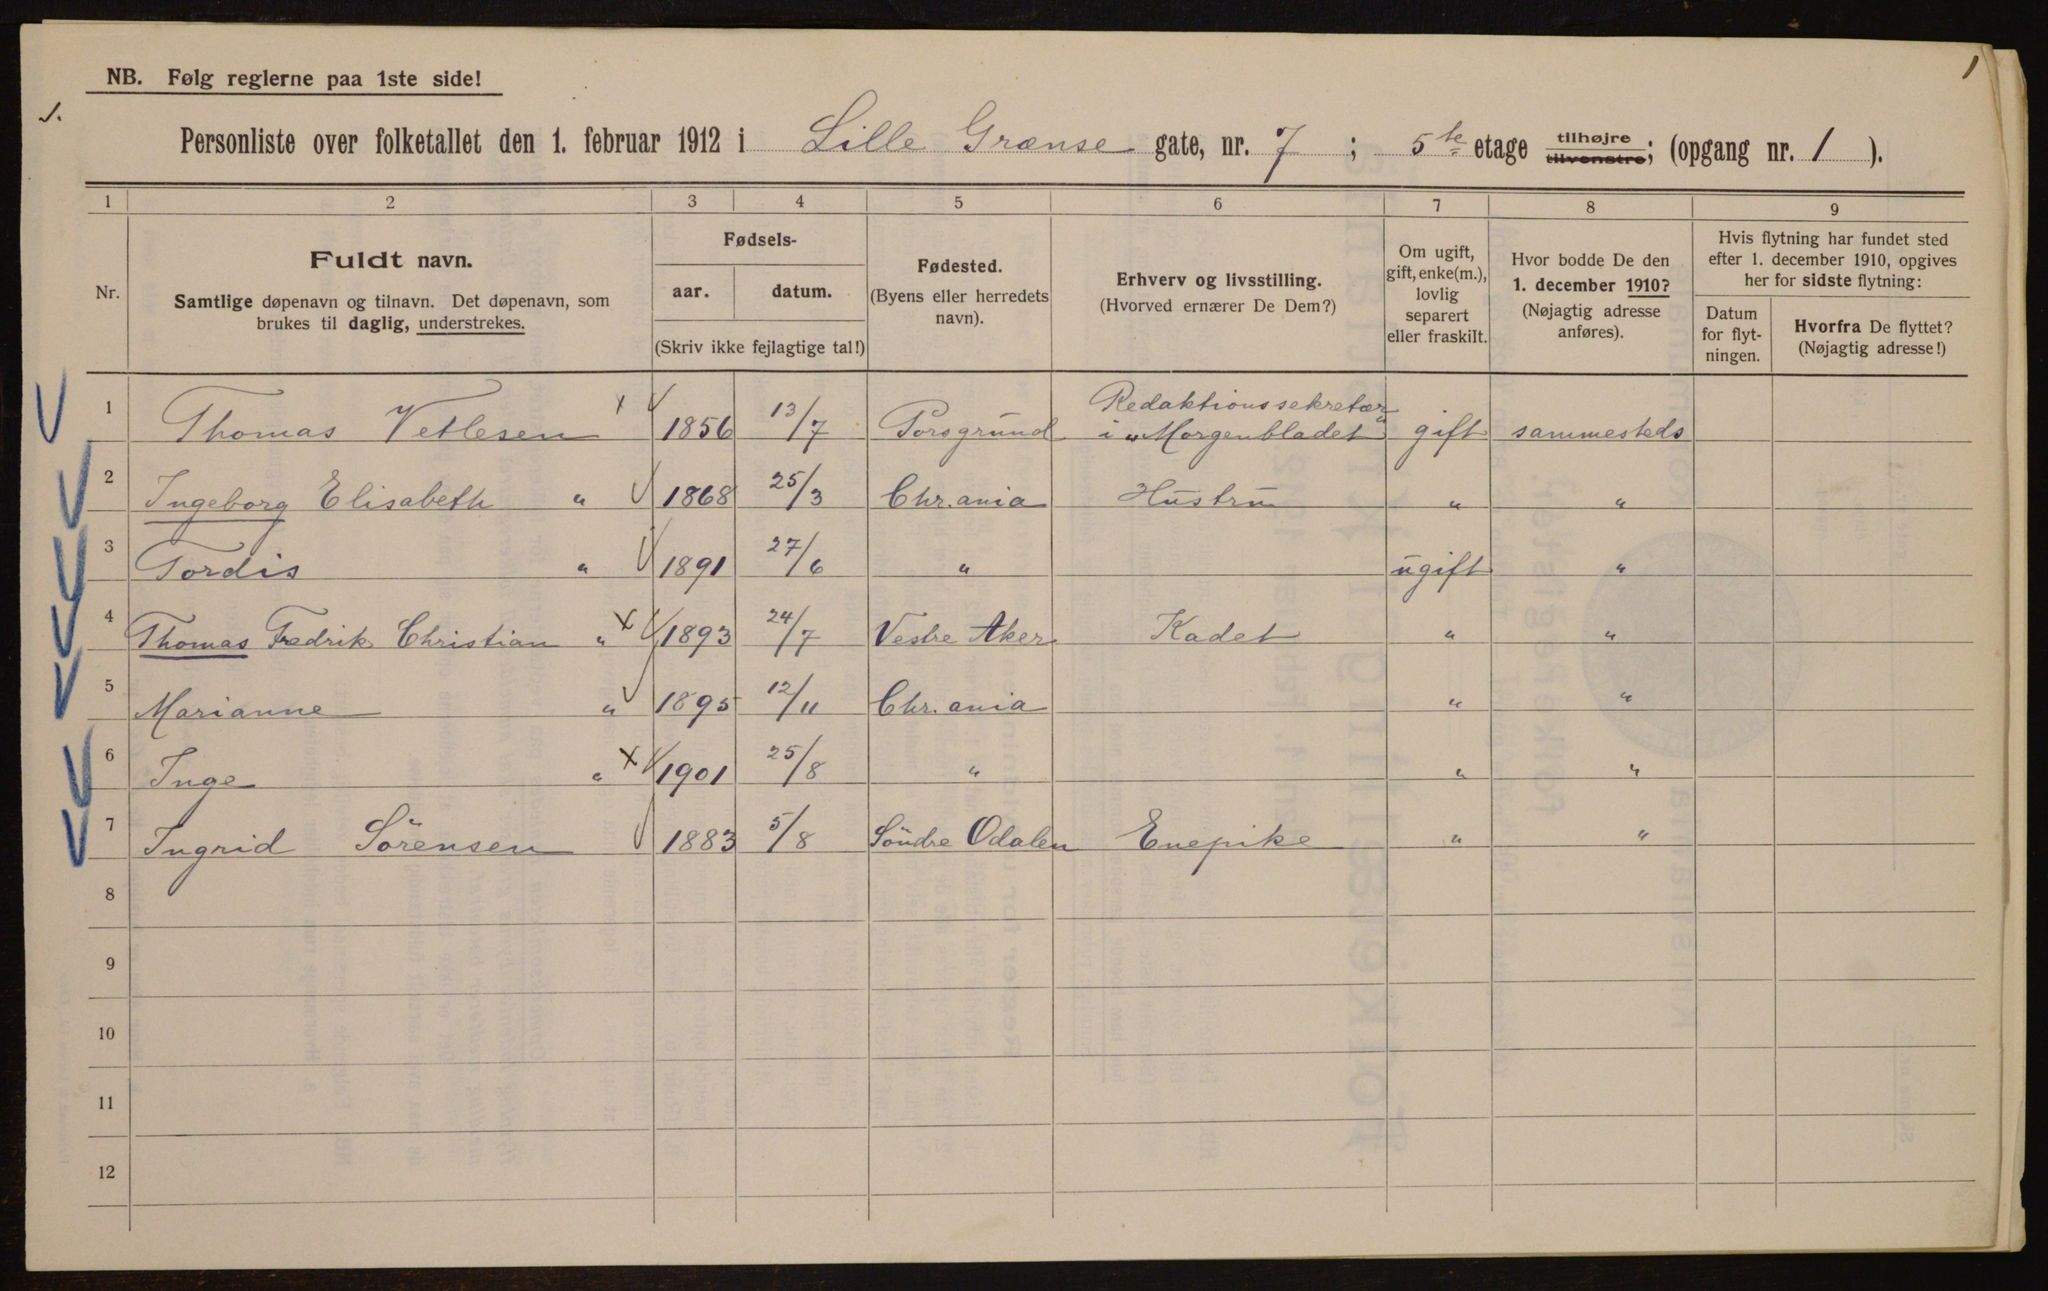 1
NB. Følg reglerne paa 1ste side!
1.
Personliste over folketallet den 1. februar 1912 i Lille Grænse gate, nr. 7 ; 5te etage tilhøjre tilvenstre; (opgang nr. 1 ).
1 2 3 4 5 6 7 8 9
Nr.
Fuldt navn.
Samtlige døpenavn og tilnavn. Det døpenavn, som
brukes til daglig, understrekes.
Fødsels-
aar. datum.
(Skriv ikke fejlagtige tal!)
Fødested.
(Byens eller herredets
navn).
Erhverv og livsstilling.
(Hvorved ernærer De Dem?)
Om ugift,
gift, enke(m.),
lovlig
separert
eller fraskilt.
Hvor bodde De den
1. december 1910?
(Nøjagtig adresse
anføres).
Hvis flytning har fundet sted
efter 1. december 1910, opgives
her for sidste flytning:
Datum
for flyt-
ningen.
Hvorfra De flyttet?
(Nøjagtig adresse!)
1 Thomas Vetlesen x 1856 13/7 Porsgrund Redaktionssekretær
i „Morgenbladet" gift sammesteds
2 Ingeborg Elisabeth " 1868 25/3 Chr.ania Hustru " "
3 Tordis " 1891 27/6 " ugift "
4 Thomas Fredrik Christian " x 1893 24/7 Vestre Aker Kadet " "
5 Marianne " 1895 12/11 Chr.ania " "
6 Inge " x 1901 25/8 " " "
7 Ingrid Sörensen 1883 5/8 Söndre Odalen Enepike " "
8
9
10
11
12